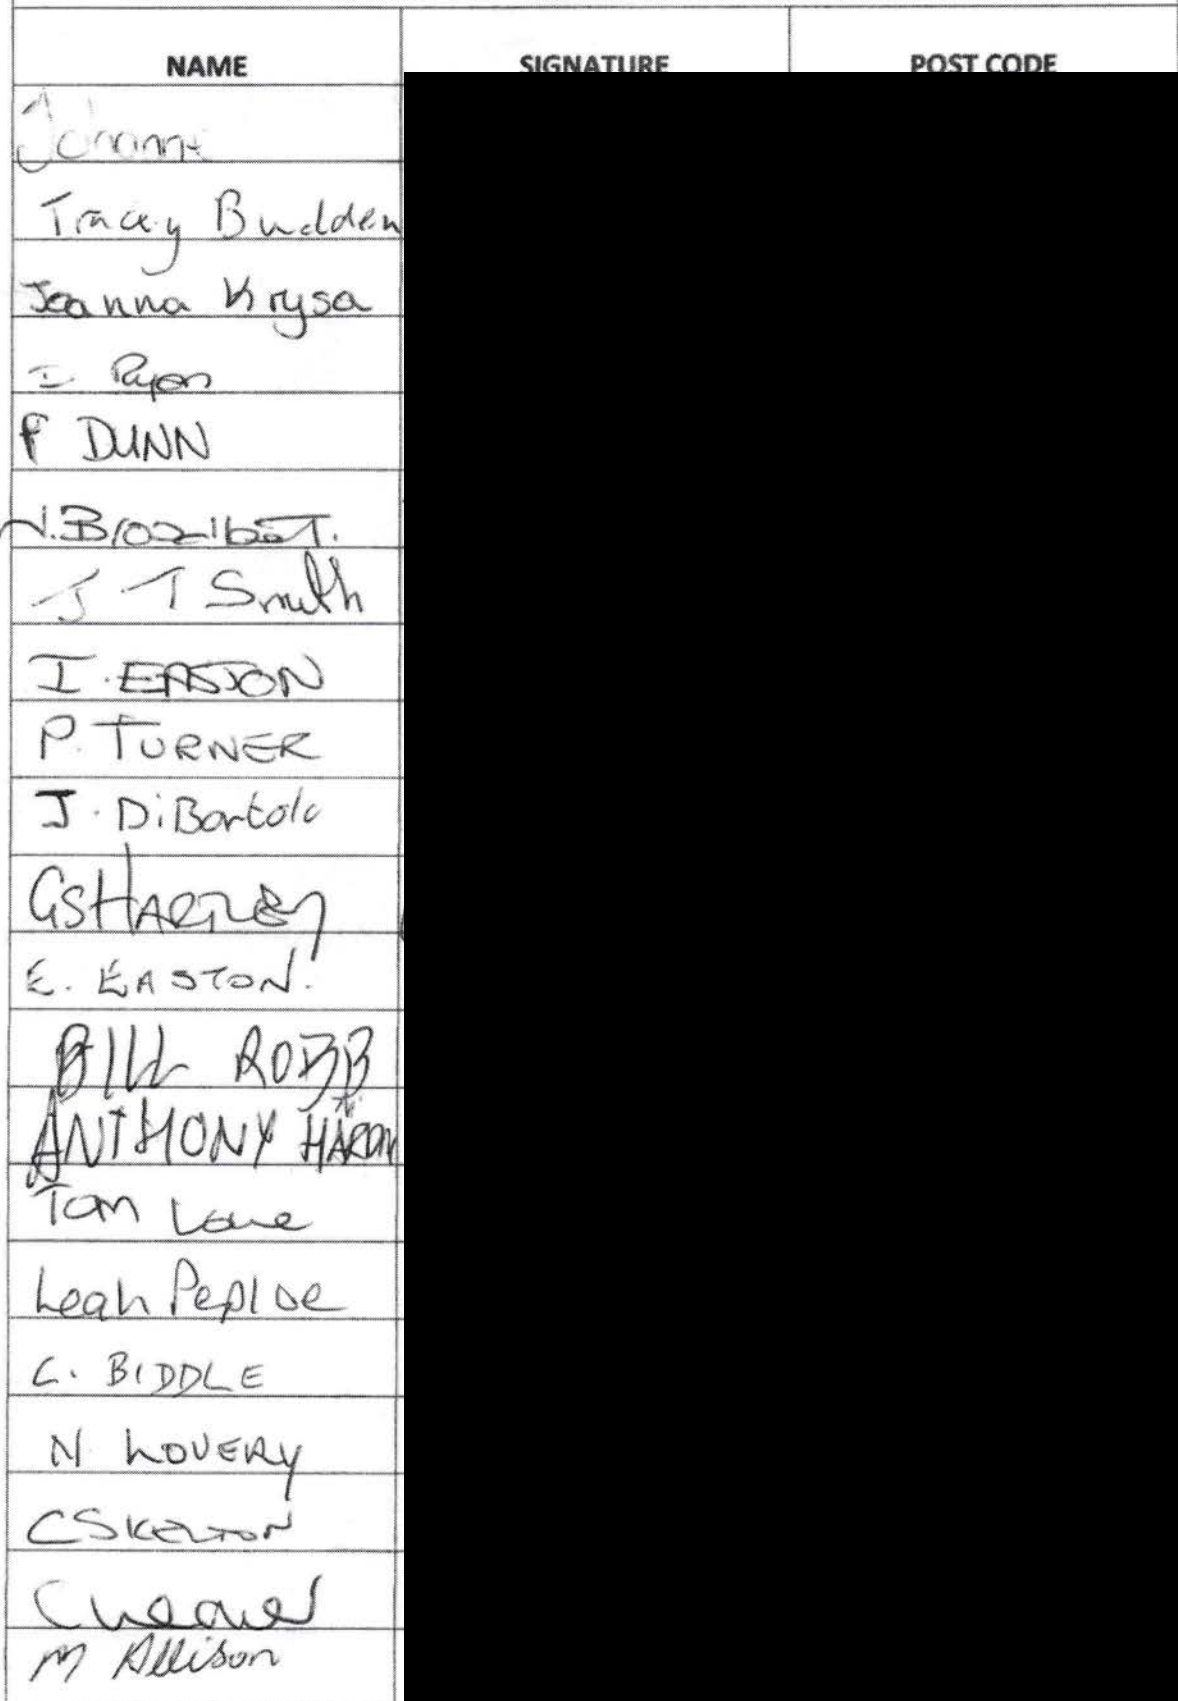 NAME SIGNATURE POST CODE
Johanne
Tracey Budden
Joanna Krysa
I Ryan
P DUNN
J T Smith
I. EASTON
P. TURNER
J. DiBartolo
GS HARTLEY
E. EASTON.
BILL ROBB
ANTHONY HARDY
Tom Lowe
Leah Peploe
C. BIDDLE
N LOVERY
C SKELTON
C Weaver
M Allison